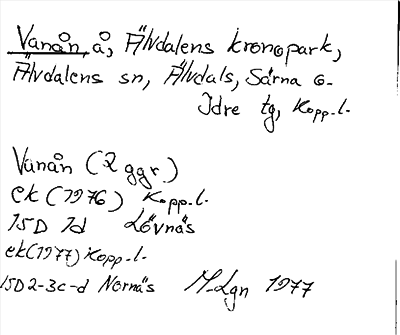 Vanån, å, Älvdalens kronopark,
Älvdalens sn, Älvdals, Särna o.
Idre tg, Kopp.l.
Vanån (2 ggr.)
ek (1976) Kopp.l.
15D 1d Lövnäs
ek (1977) Kopp.l.
15D 2-3c-d Nornäs M-Lgn 1977